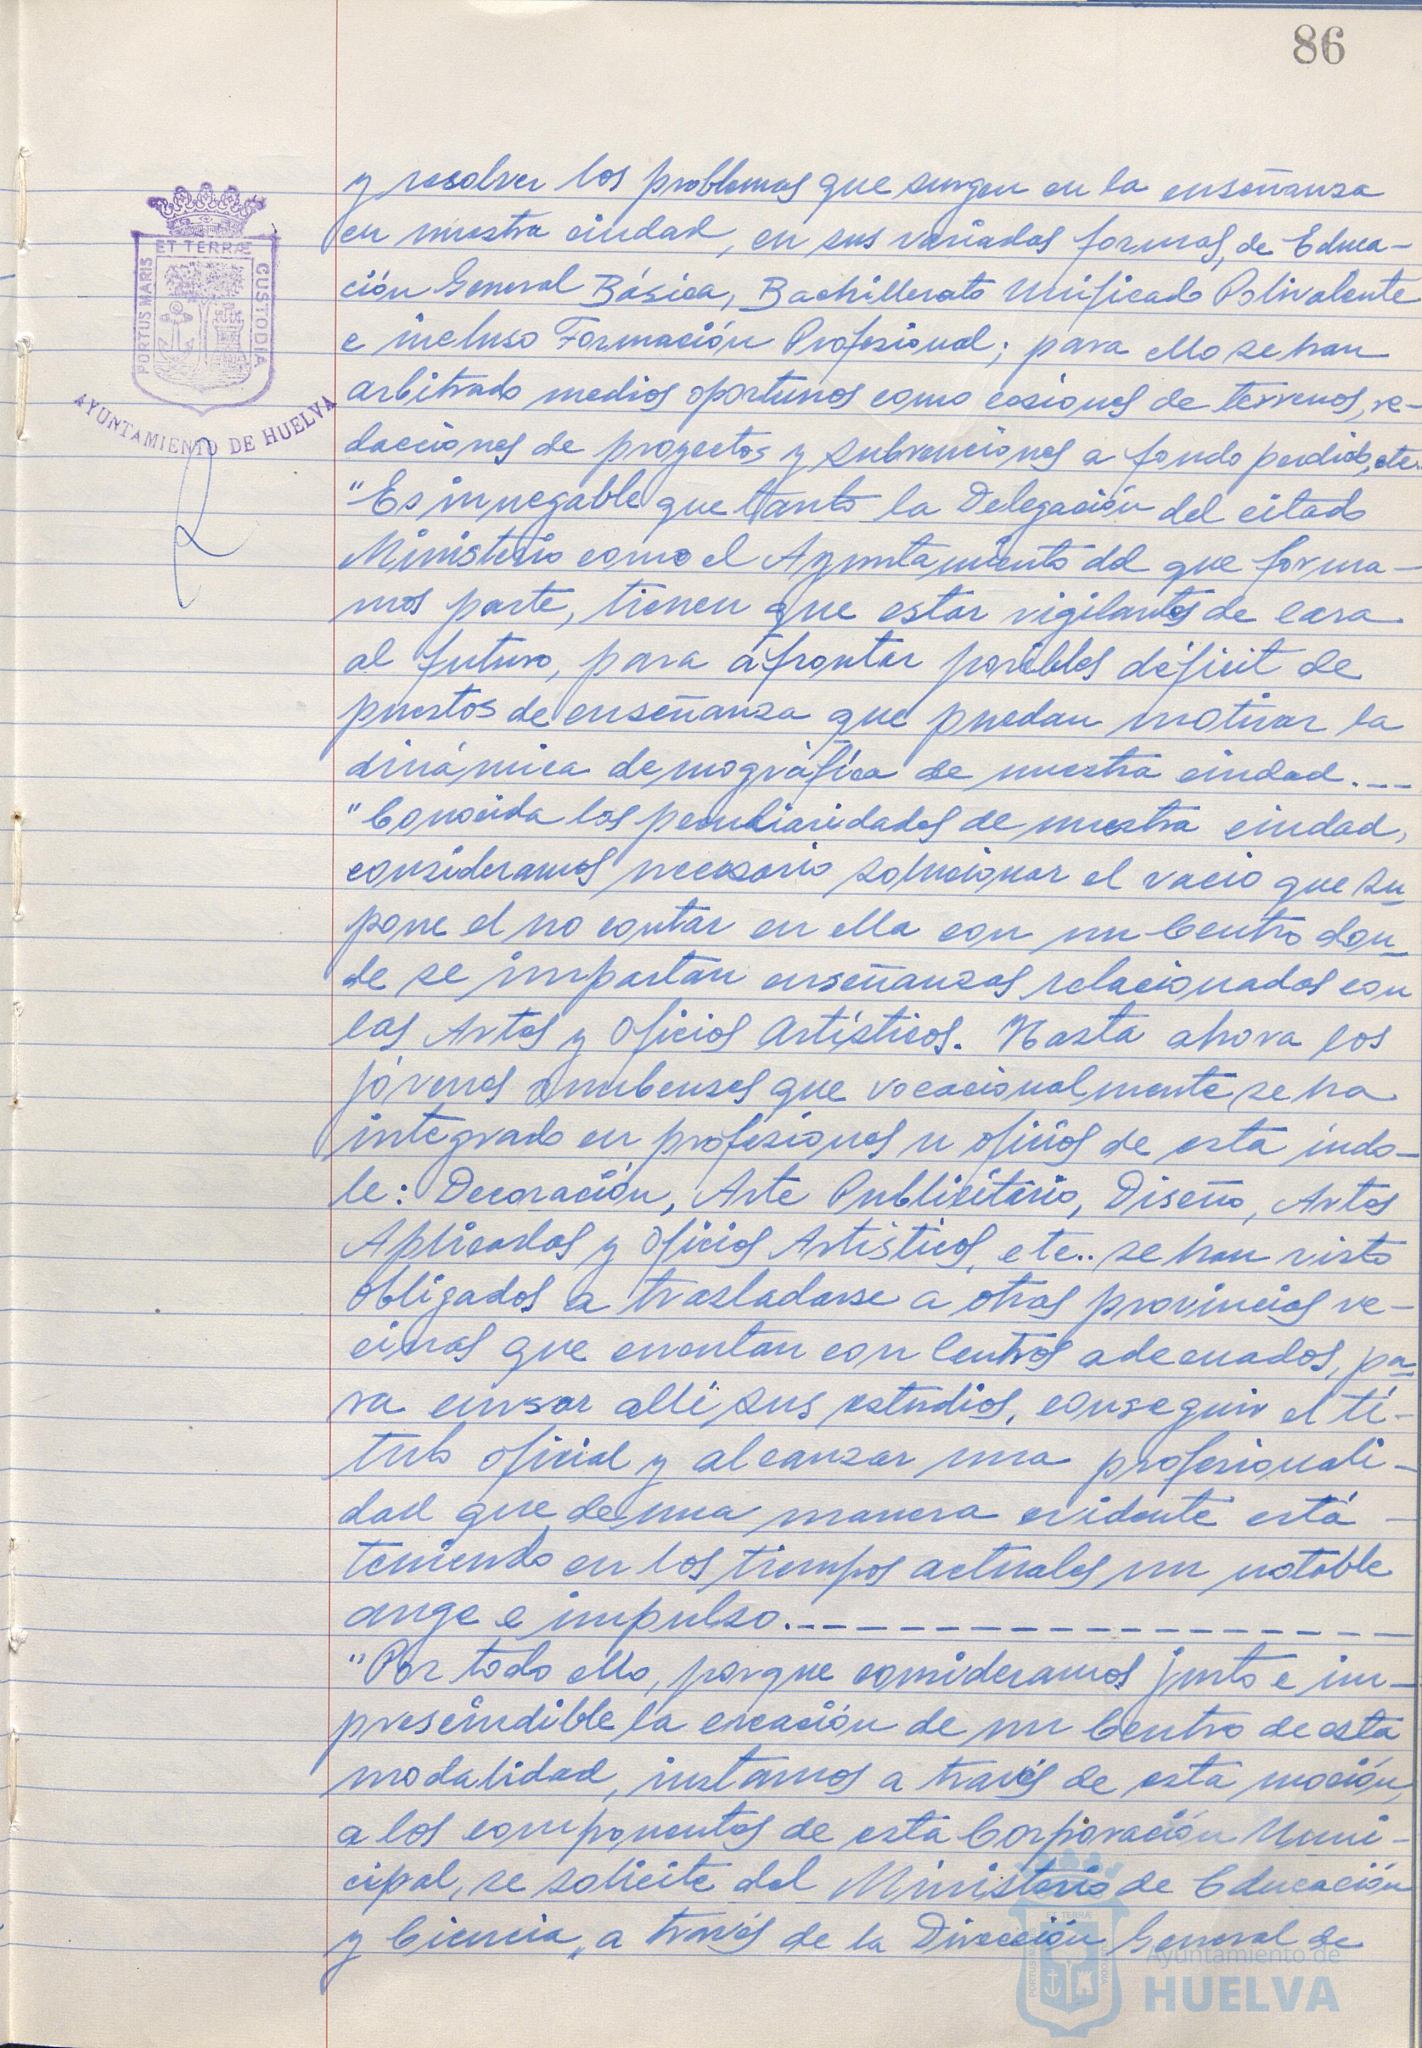 86
y resolver los problemas que surgen en la enseñanza
en nuestra ciudad, en sus variadas formas, de Educa-
ción General Básica, Bachillerato Unificado Polivalente
e incluso Formación Profesional; para ello se han
arbitrado medios oportunos como cesiones de terrenos, re-
dacciones de proyectos y subvenciones a fondo perdido, etc..
"Es innegable que tanto la Delegación del citado
Ministerio como el Ayuntamiento del que forma-
mos parte, tienen que estar vigilantes de cara
al futuro, para afrontar posibles déficit de
puestos de enseñanza que puedan motivar la
dinámica demográfica de nuestra ciudad.---
"Conocida las peculiaridades de nuestra ciudad,
consideramos necesario solucionar el vacío que su
pone el no contar en ella con un Centro don
de se impartan enseñanzas relacionadas con
las Artes y Oficios Artísticos. Hasta ahora los
jóvenes onubenses que vocacionalmente se ha
integrado en profesiones u oficios de esta índo-
le: Decoración, Arte Publicitario, Diseño, Artes
Aplicadas y Oficios Artísticos, etc.. se han visto
obligados a trasladarse a otras provincias ve-
cinas que cuentan con Centros adecuados, pa
ra cursar allí sus estudios, conseguir el tí-
tulo oficial y alcanzar una profesionali-
dad que de una manera evidente está -
teniendo en los tiempos actuales un notable
auge e impulso.- - - - - - - - - - - - - - - - - -
"Por todo ello, porque consideramos justo e im-
prescindible la creación de un Centro de esta
modalidad, instamos a través de esta moción,
a los componentes de esta Corporación Muni-
cipal, se solicite del Ministerio de Educación
y Ciencia, a través de la Dirección General de
PORTUS MARIS ET TERRÆ CUSTODIA
AYUNTAMIENTO DE HUELVA
Ayuntamiento de
HUELVA